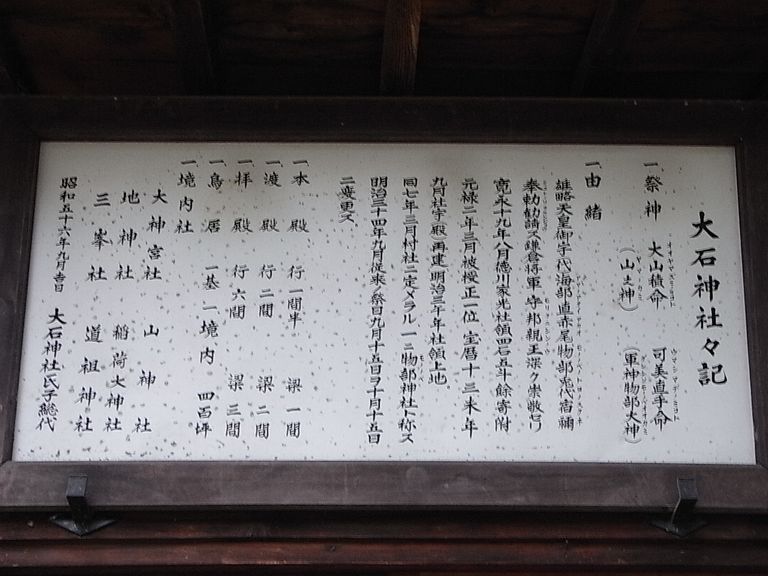 大石神社々記
一 祭神 大山積命 可美真手命
オオヤマズミノミコト ウマシマデノミコト
(山之神) (軍神物部大神)
一 由緒
雄略天皇御宇代海部直赤尾物部兎代宿禰
奉勅勧請ス鎌倉将軍 守邦親王深ク崇敬セリ
寛永十九年八月徳川家光社領四石五斗餘寄附
元禄二年三月被授正一位 宝暦十三未年
九月社宇殿再建 明治三年年社領上地
同七年三月村社ニ定メラル 一ニ物部神社ト称ス
明治三十四年九月従来ノ祭日九月十五日ヲ十月十五日
ニ変更ス
一 本殿 行一間半 梁一間
一 渡殿 行二間 梁二間
一 拝殿 行六間 梁三間
一 鳥居 一基 一境内 四百坪
一 境内社
大神宮社 山神社
地神社 稲荷大神社
三峯社 道祖神社
昭和五十六年九月吉日 大石神社氏子総代